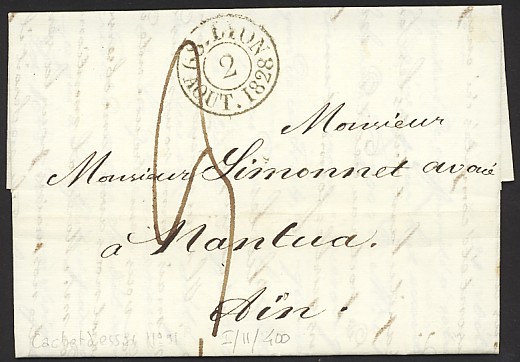 68. LYON
2
AOUT. 1828
Monsieur
Monsieur Simonnet avoué
à Nantua.
Ain.
Cachet d'essai n° 91
I/11/400